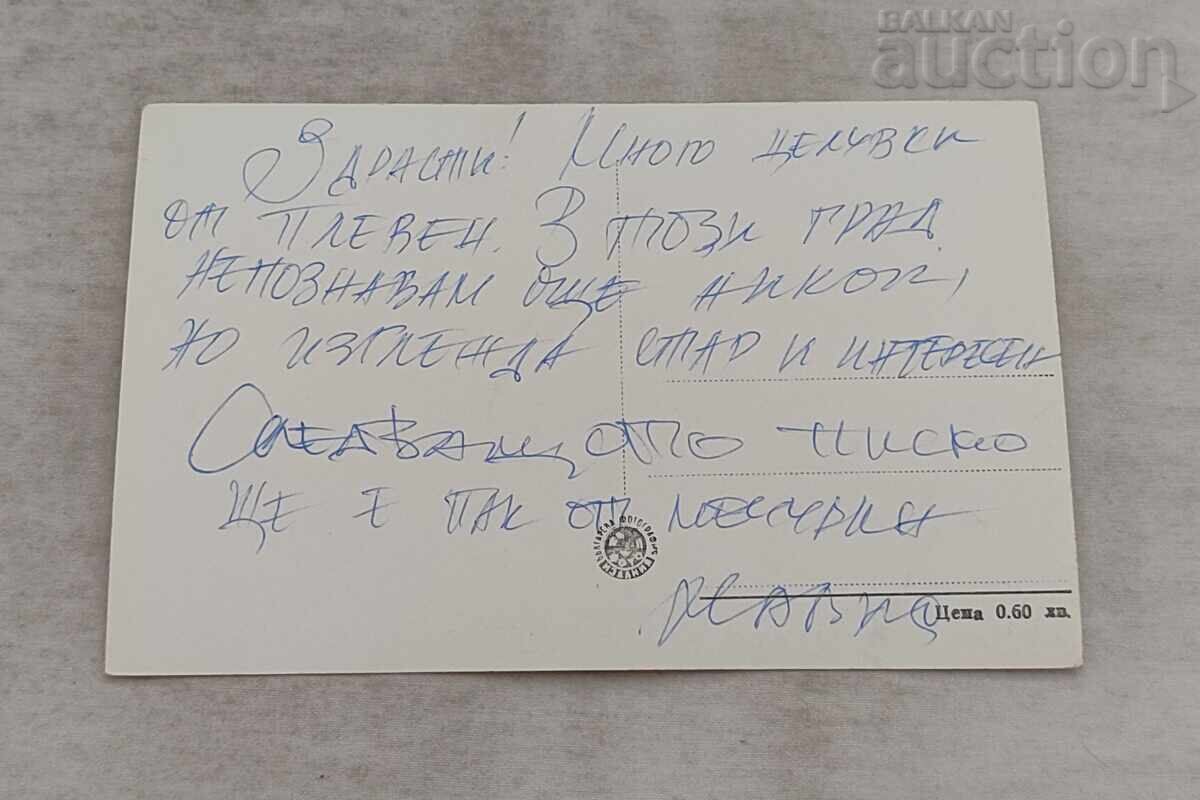 BALKAN
auction
Здрасти! Много целувки
от Плевен. В този град
непознавам още никой,
но изглежда стар и интересен
Следващото писмо
ще е пак от
Цена 0.60 лв.